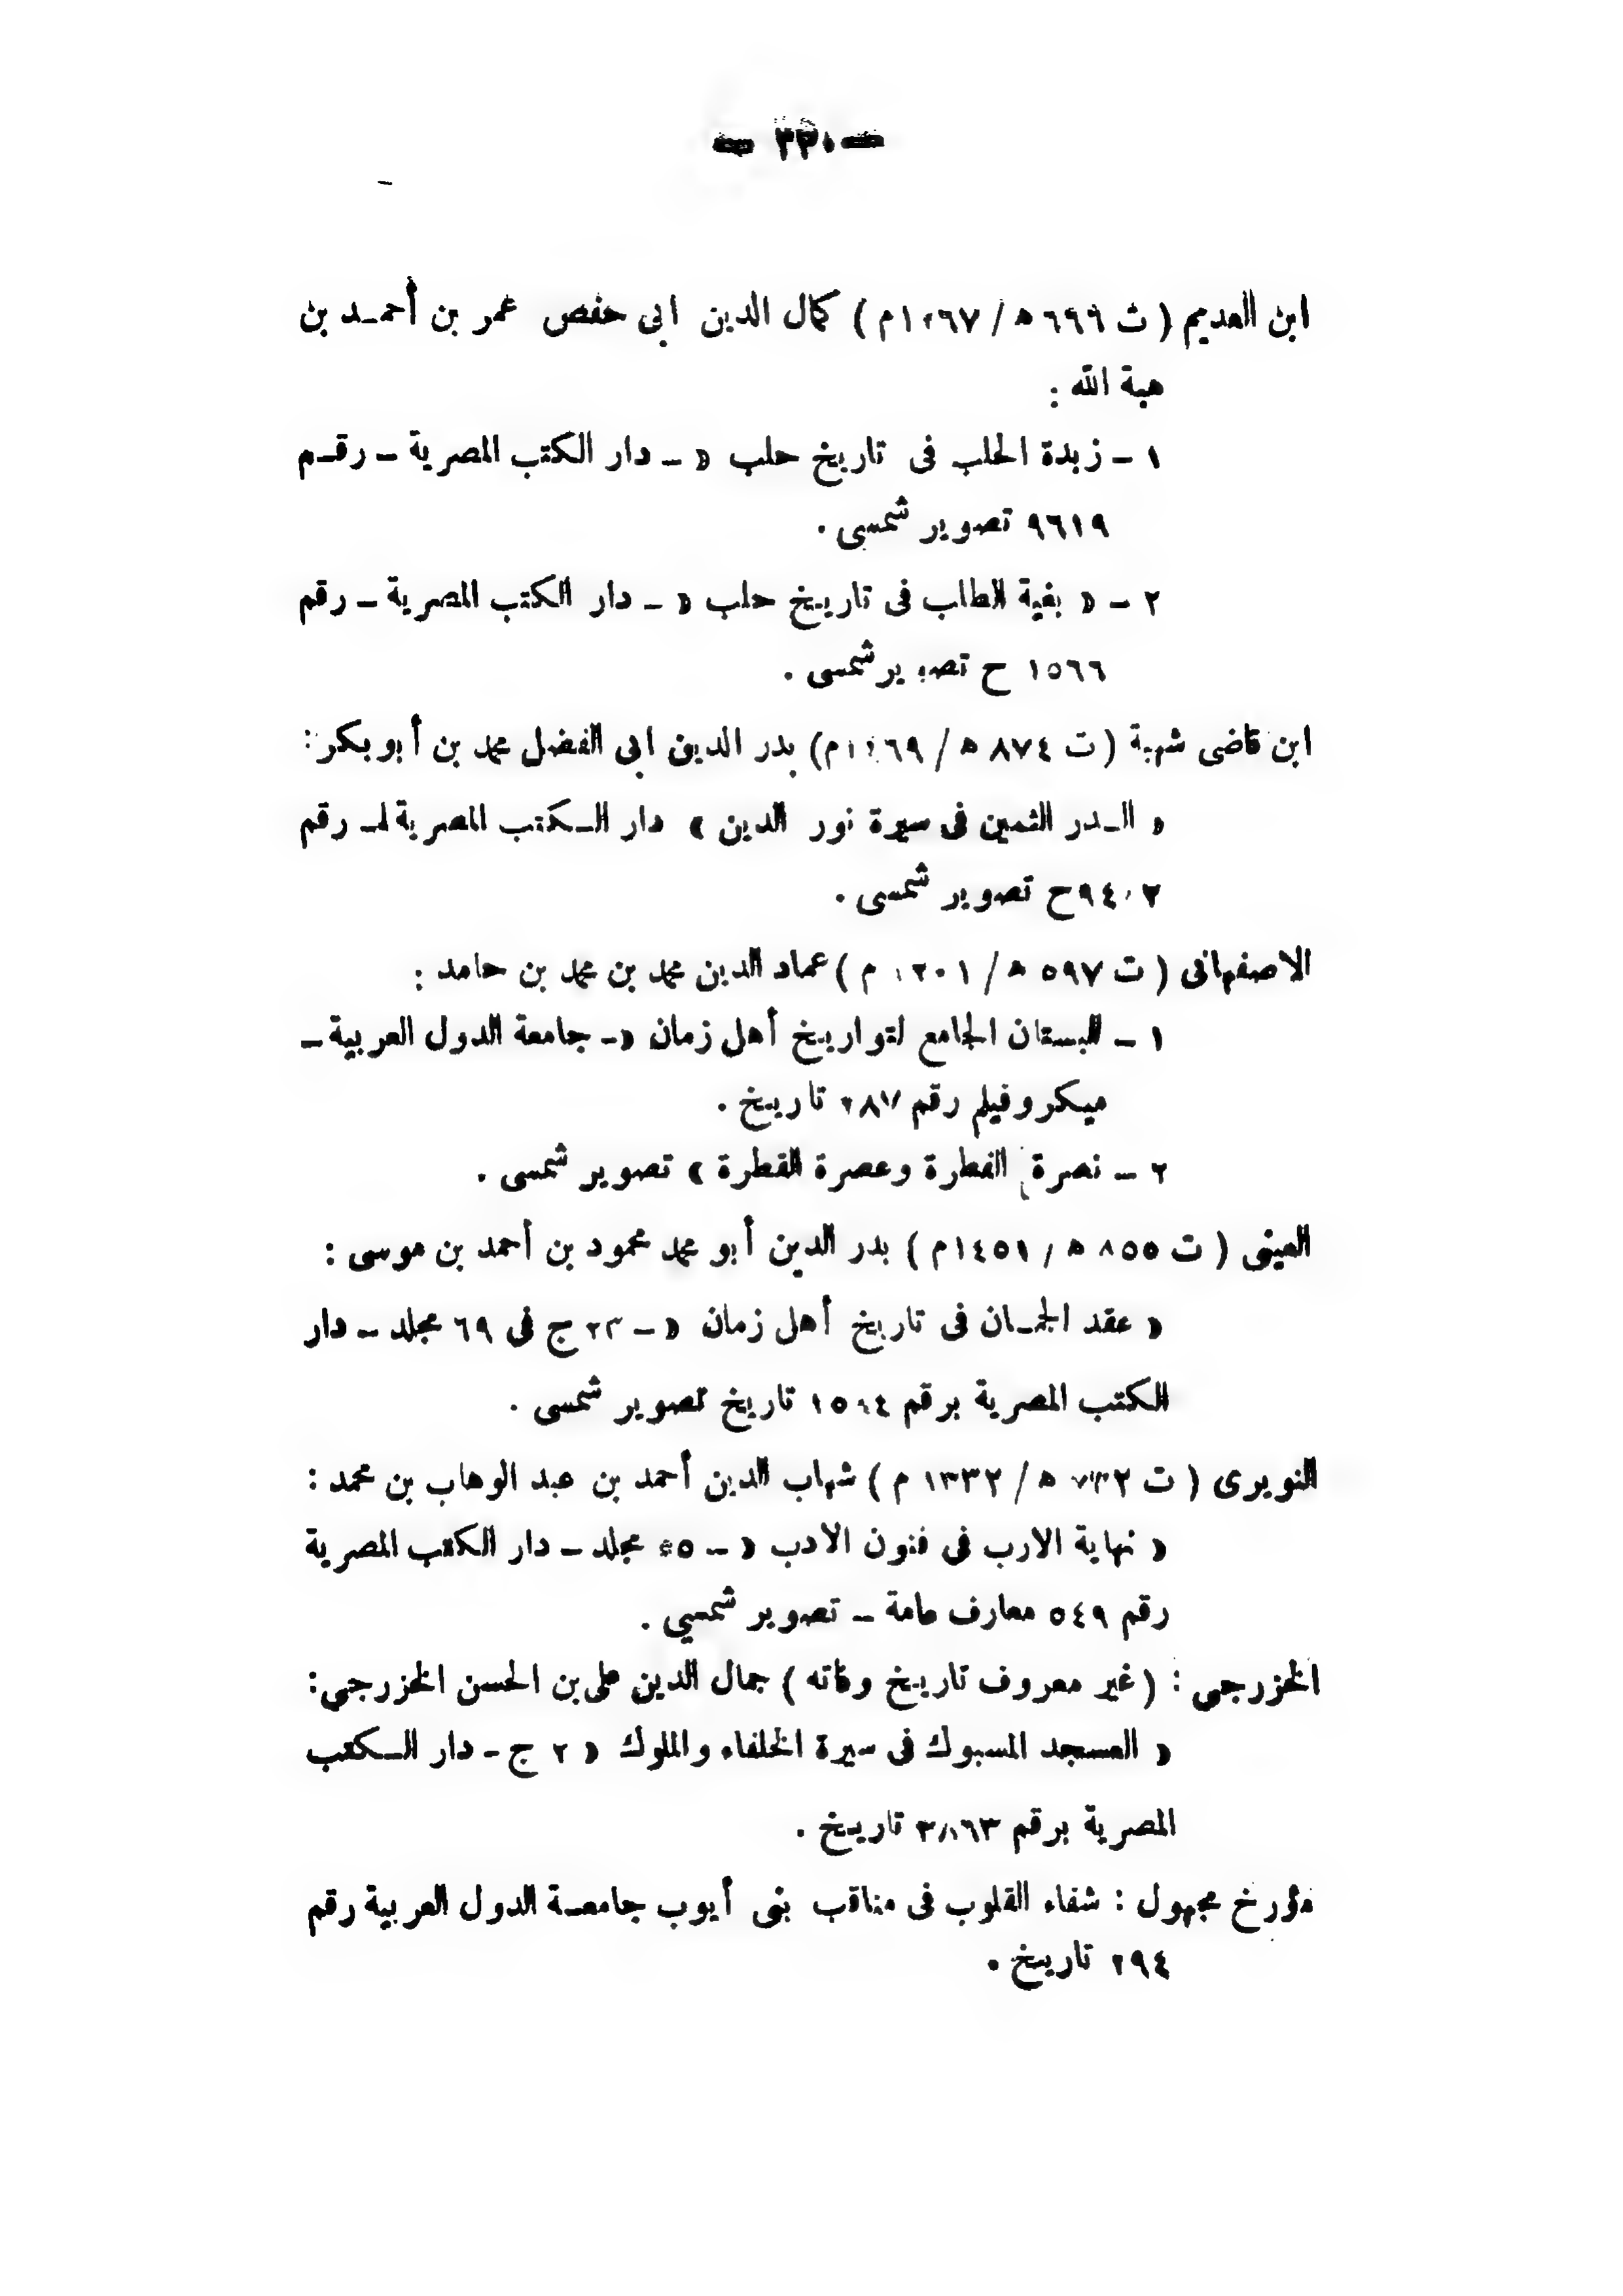 — ٣٣٠ —
ابن العديم ( ت ٦٩٩ ه / ١٢٦٧م ) كمال الدين ابى حفص عمر بن أحمـد بن
هبة الله :
١ – زبدة الحلب فى تاريخ حلب « – دار الكتب المصرية – رقـم
٩٦١٩ تصوير شمسى .
٢ – « بغية الطالب فى تاريخ حلب « – دار الكتب المصرية – رقم
١٥٦٦ ح تصوير شمسى .
ابن قاضى شهبة ( ت ٨٧٤ ه / ١٤٦٩م) بدر الدين ابى الفضل محمد بن أبو بكر :
« الـدر الثمين فى سيرة نور الدين » دار الـكتب المصرية – رقم
٩٤٠٢ح تصوير شمسى .
الاصفهانى ( ت ٥٩٧ ه / ١٢٠١ م ) عماد الدين محمد بن محمد بن حامد :
١ – البستان الجامع لتواريخ أهل زمان « – جامعة الدول العربية –
ميكروفيلم رقم ٢٨٧ تاريخ .
٢ – نصرة الفطرة وعصرة القطرة » تصوير شمسى .
العينى ( ت ٨٥٥ ه / ١٤٥١م ) بدر الدين أبو محمد محمود بن أحمد بن موسى :
« عقد الجمـان فى تاريخ أهل زمان « – ٢٣ ج فى ٦٩ مجلد – دار
الكتب المصرية برقم ١٥٨٤ تاريخ تصوير شمسى .
النويرى ( ت ٧٣٢ ه / ١٣٣٢ م ) شهاب الدين أحمد بن عبد الوهاب بن محمد :
« نهاية الارب فى فنون الادب « – مجلد – دار الكتب المصرية
رقم ٥٤٩ معارف عامة – تصوير شمسي .
الخزرجى : ( غير معروف تاريخ وفاته ) جمال الدين على بن الحسن الخزرجى :
« العسجد المسبوك فى سيرة الخلفاء والملوك « ٢ ج – دار الـكتب
المصرية برقم ٣٨٦٣ تاريخ .
مؤرخ مجهول : شفاء القلوب فى مناقب بنى أيوب جامعـة الدول العربية رقم
٢٩٤ تاريخ .